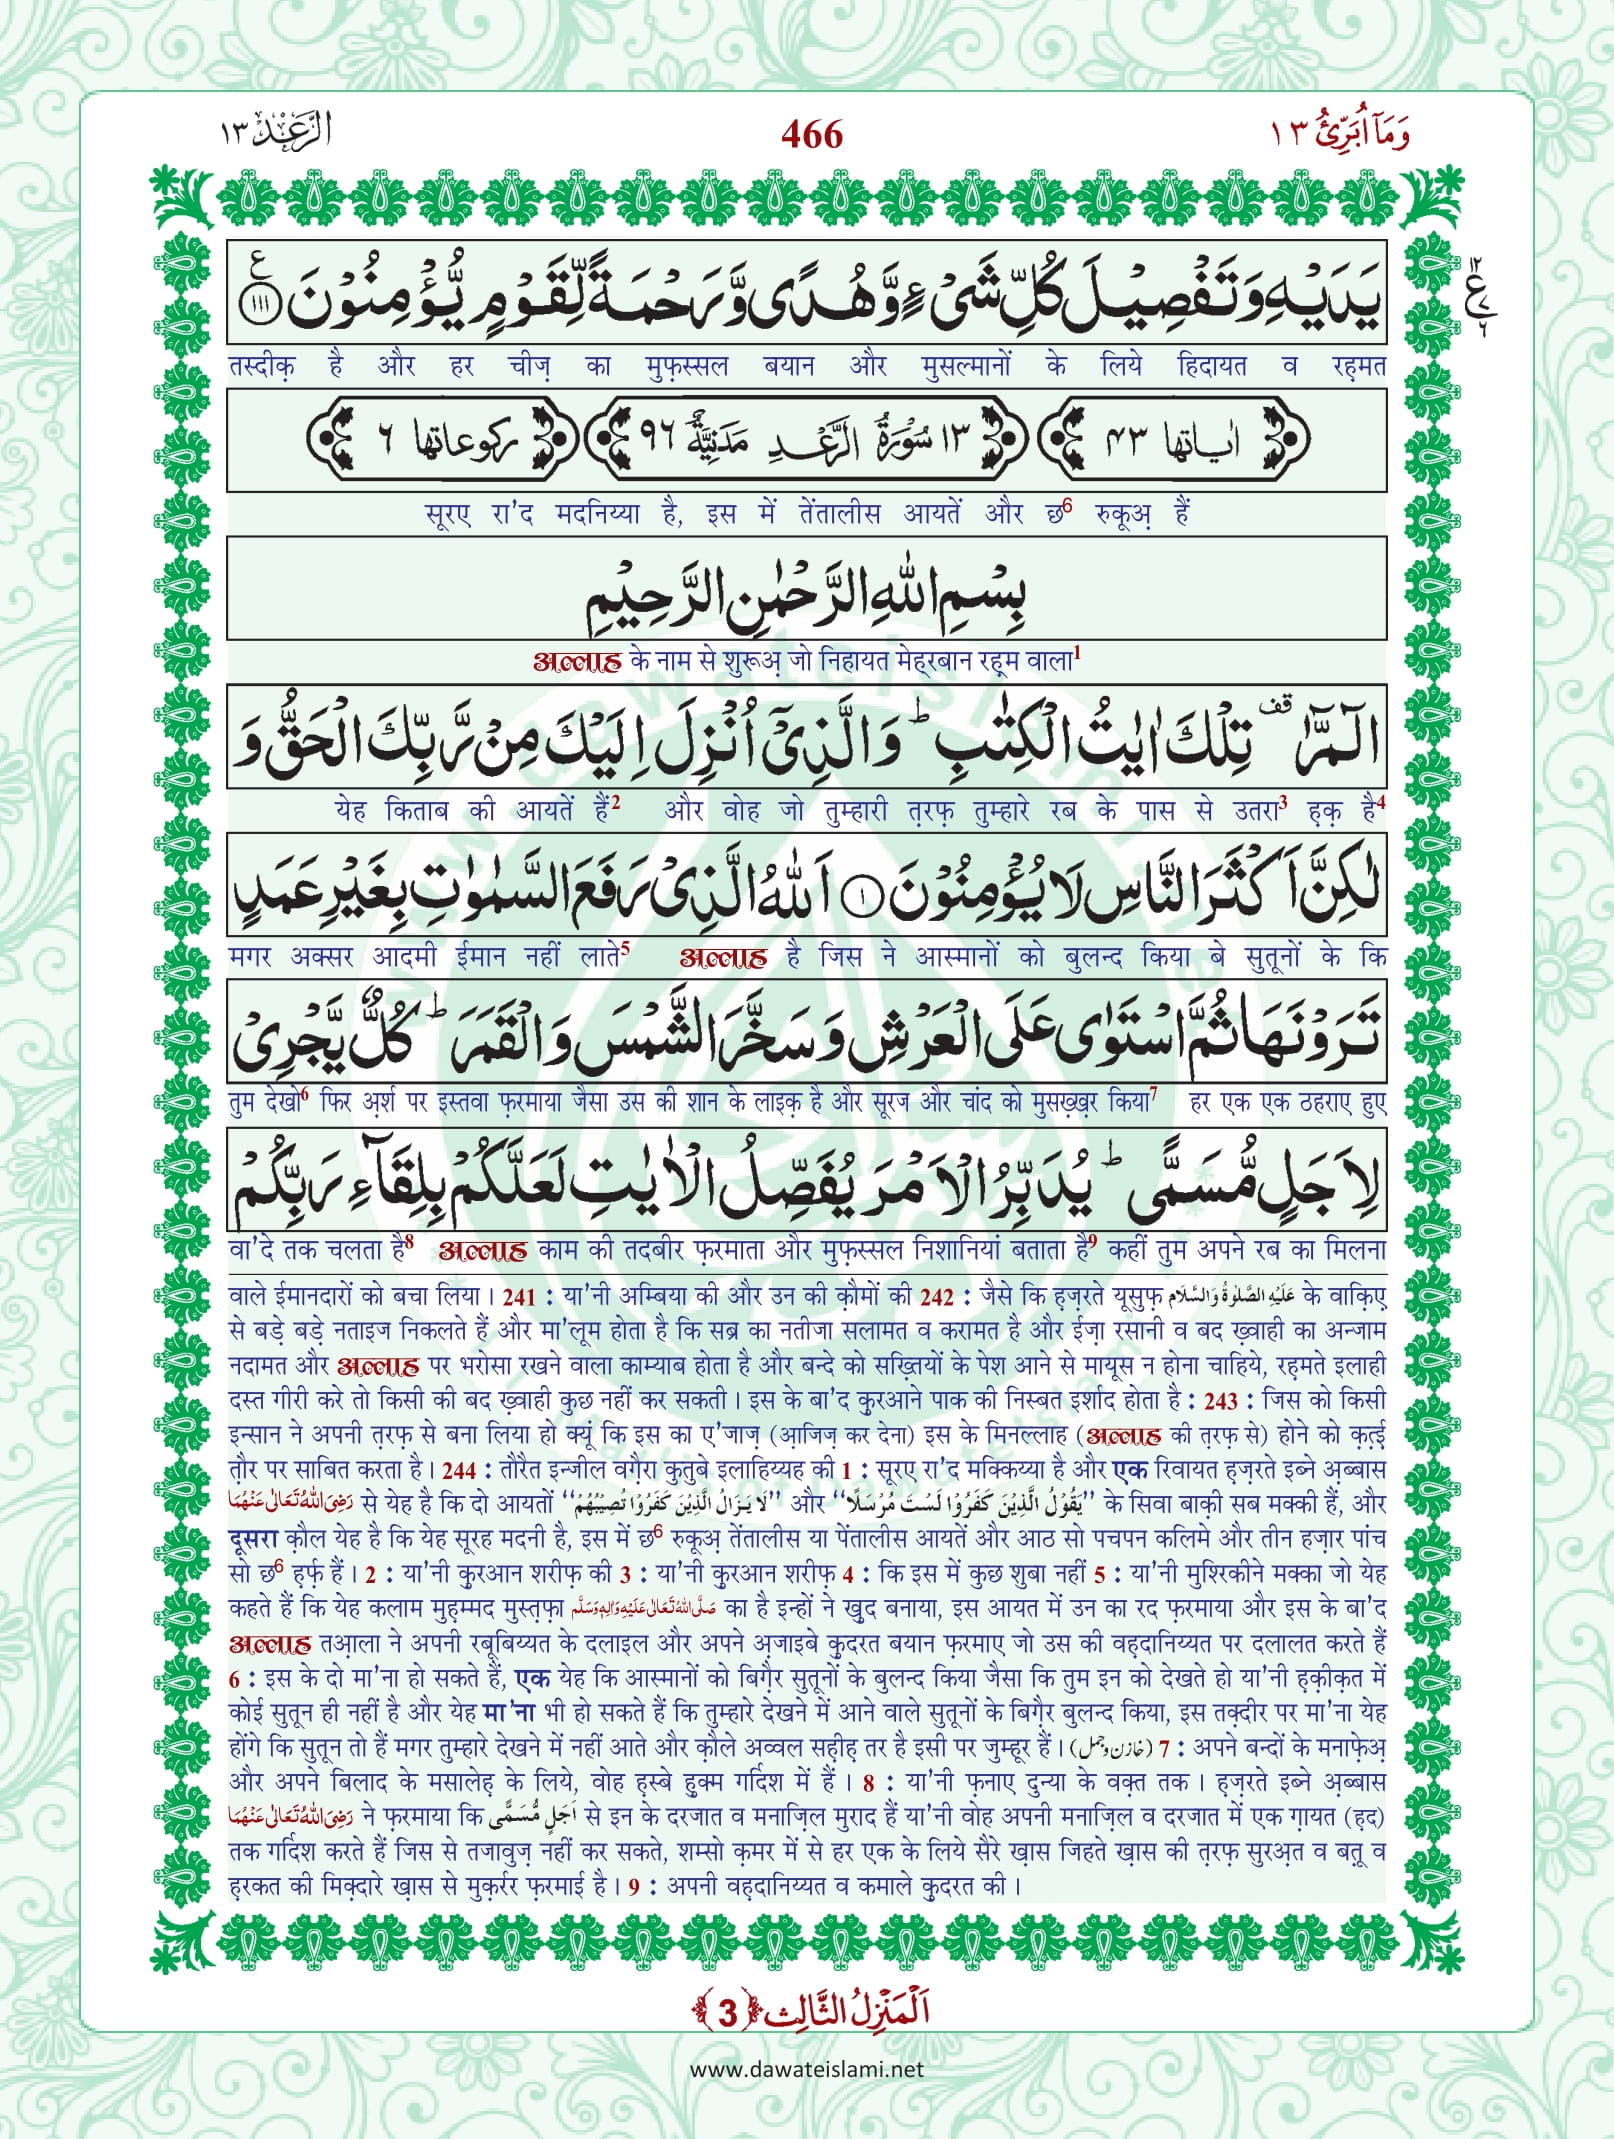 وَمَآ اُبَرِّئُ ١٣
466
الرَّعْد ١٣
يَدَيْهِ وَتَفْصِيْلَ كُلِّ شَىْءٍ وَّهُدًى وَّرَحْمَةً لِّقَوْمٍ يُّؤْمِنُوْنَ ﴿١١١﴾ ع
तस्दीक़ है और हर चीज़ का मुफ़स्सल बयान और मुसल्मानों के लिये हिदायत व रह़मत
اٰیاتها ٤٣
١٣ سُوْرَةُ الرَّعْدِ مَدَنِيَّةٌ ٩٦
رکوعاتها ٦
सूरए रा'द मदनिय्या है, इस में तेंतालीस आयतें और छ6 रुकूअ़ हैं
بِسْمِ اللّٰهِ الرَّحْمٰنِ الرَّحِيْمِ
अल्लाह के नाम से शुरूअ़ जो निहायत मेह्रबान रह़्म वाला1
الٓـمّٓرٰ ۫ تِلْكَ اٰيٰتُ الْكِتٰبِ ؕ وَالَّذِىْٓ اُنْزِلَ اِلَيْكَ مِنْ رَّبِّكَ الْحَقُّ وَ
येह किताब की आयतें हैं2 और वोह जो तुम्हारी त़रफ़ तुम्हारे रब के पास से उतरा3 ह़क़ है4
لٰكِنَّ اَكْثَرَ النَّاسِ لَا يُؤْمِنُوْنَ ﴿١﴾ اَللّٰهُ الَّذِىْ رَفَعَ السَّمٰوٰتِ بِغَيْرِ عَمَدٍ
मगर अक्सर आदमी ईमान नहीं लाते5 अल्लाह है जिस ने आस्मानों को बुलन्द किया बे सुतूनों के कि
تَرَوْنَهَا ثُمَّ اسْتَوٰى عَلَى الْعَرْشِ وَسَخَّرَ الشَّمْسَ وَالْقَمَرَ ؕ كُلٌّ يَّجْرِىْ
तुम देखो6 फिर अ़र्श पर इस्तवा फ़रमाया जैसा उस की शान के लाइक़ है और सूरज और चांद को मुसख़्ख़र किया7 हर एक एक ठहराए हुए
لِاَجَلٍ مُّسَمًّى ؕ يُدَبِّرُ الْاَمْرَ يُفَصِّلُ الْاٰيٰتِ لَعَلَّكُمْ بِلِقَآءِ رَبِّكُمْ
वा'दे तक चलता है8 अल्लाह काम की तदबीर फ़रमाता और मुफ़स्सल निशानियां बताता है9 कहीं तुम अपने रब का मिलना
वाले ईमानदारों को बचा लिया । 241 : या'नी अम्बिया की और उन की क़ौमों की 242 : जैसे कि ह़ज़रते यूसुफ़ عَلَيْهِ الصَّلٰوةُ وَالسَّلَام के वाक़िए
से बड़े बड़े नताइज निकलते हैं और मा'लूम होता है कि सब्र का नतीजा सलामत व करामत है और ईज़ा रसानी व बद ख़्वाही का अन्जाम
नदामत और अल्लाह पर भरोसा रखने वाला काम्याब होता है और बन्दे को सख़्तियों के पेश आने से मायूस न होना चाहिये, रह़मते इलाही
दस्त गीरी करे तो किसी की बद ख़्वाही कुछ नहीं कर सकती । इस के बा'द क़ुरआने पाक की निस्बत इर्शाद होता है : 243 : जिस को किसी
इन्सान ने अपनी त़रफ़ से बना लिया हो क्यूं कि इस का ए'जाज़ (आ़जिज़ कर देना) इस के मिनल्लाह (अल्लाह की त़रफ़ से) होने को क़त़्ई
त़ौर पर साबित करता है । 244 : तौरैत इन्जील वग़ैरा कुतुबे इलाहिय्यह की 1 : सूरए रा'द मक्किय्या है और एक रिवायत ह़ज़रते इब्ने अ़ब्बास
رَضِىَ اللّٰهُ تَعَالٰى عَنْهُمَا से येह है कि दो आयतों ‘‘لَا يَزَالُ الَّذِيْنَ كَفَرُوْا تُصِيْبُهُمْ’’ और ‘‘يَقُوْلُ الَّذِيْنَ كَفَرُوْا لَسْتَ مُرْسَلًا’’ के सिवा बाक़ी सब मक्की हैं, और
दूसरा क़ौल येह है कि येह सूरह मदनी है, इस में छ6 रुकूअ़ तेंतालीस या पेंतालीस आयतें और आठ सो पचपन कलिमे और तीन हज़ार पांच
सो छ6 ह़र्फ़ हैं । 2 : या'नी क़ुरआन शरीफ़ की 3 : या'नी क़ुरआन शरीफ़ 4 : कि इस में कुछ शुबा नहीं 5 : या'नी मुश्रिकीने मक्का जो येह
कहते हैं कि येह कलाम मुह़म्मद मुस्त़फ़ा صَلَّى اللّٰهُ تَعَالٰى عَلَيْهِ وَاٰلِهٖ وَسَلَّم का है इन्हों ने ख़ुद बनाया, इस आयत में उन का रद फ़रमाया और इस के बा'द
अल्लाह तआ़ला ने अपनी रबूबिय्यत के दलाइल और अपने अ़जाइबे क़ुदरत बयान फ़रमाए जो उस की वह़दानिय्यत पर दलालत करते हैं
6 : इस के दो मा'ना हो सकते हैं, एक येह कि आस्मानों को बिग़ैर सुतूनों के बुलन्द किया जैसा कि तुम इन को देखते हो या'नी ह़क़ीक़त में
कोई सुतून ही नहीं है और येह मा'ना भी हो सकते हैं कि तुम्हारे देखने में आने वाले सुतूनों के बिग़ैर बुलन्द किया, इस तक़्दीर पर मा'ना येह
होंगे कि सुतून तो हैं मगर तुम्हारे देखने में नहीं आते और क़ौले अव्वल सह़ीह़ तर है इसी पर जुम्हूर हैं । (خازن و جمل) 7 : अपने बन्दों के मनाफ़ेअ़
और अपने बिलाद के मसालेह़ के लिये, वोह ह़स्बे हु़क्म गर्दिश में हैं । 8 : या'नी फ़नाए दुन्या के वक़्त तक । ह़ज़रते इब्ने अ़ब्बास
رَضِىَ اللّٰهُ تَعَالٰى عَنْهُمَا ने फ़रमाया कि اَجَلٍ مُّسَمًّى से इन के दरजात व मनाज़िल मुराद हैं या'नी वोह अपनी मनाज़िल व दरजात में एक ग़ायत (ह़द)
तक गर्दिश करते हैं जिस से तजावुज़ नहीं कर सकते, शम्सो क़मर में से हर एक के लिये सैरे ख़ास जिहते ख़ास की त़रफ़ सुरअ़त व बत़ू व
ह़रकत की मिक़्दारे ख़ास से मुक़र्रर फ़रमाई है । 9 : अपनी वह़दानिय्यत व कमाले क़ुदरत की ।
اَلْمَنْزِلُ الثَّالِث ﴿3﴾
www.dawateislami.net